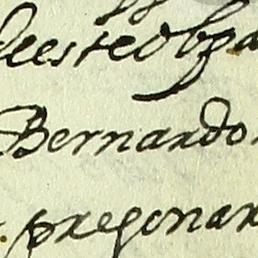 deesteobza
Bernardo
pregonar